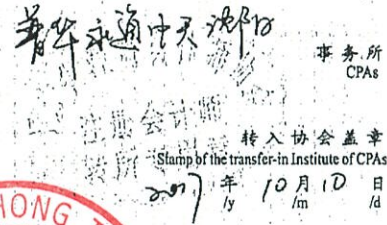 普华永道中天沈阳
事务所
CPAs
注册会计师
转入协会盖章
Stamp of the transfer-in Institute of CPAs
2017年10月10日
/y /m /d
HONG T